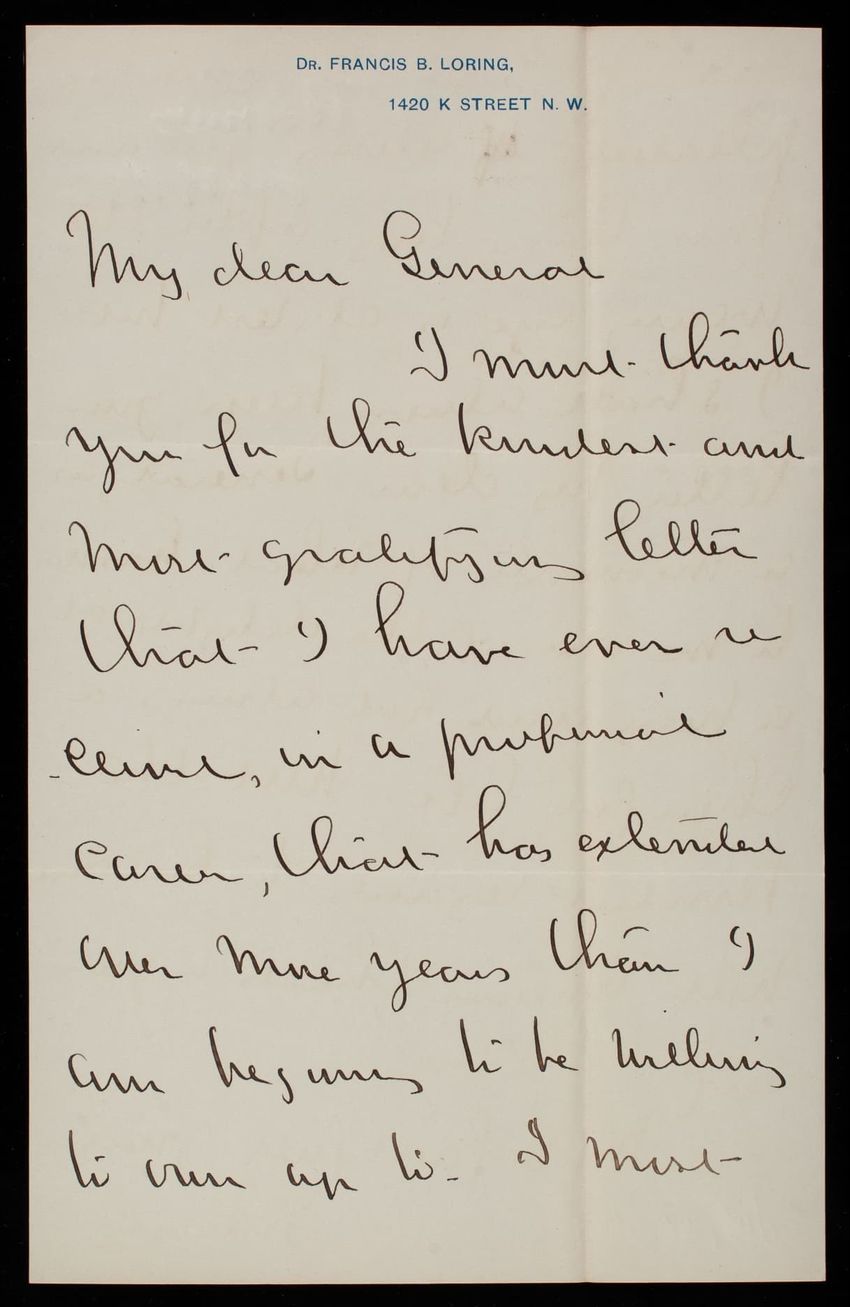 DR. FRANCIS B. LORING,
1420 K STREET N. W.
My dear General
I must thank
you for the kindest and
most gratifying letter
that I have ever re
-ceived, in a professional
career, that has extended
over more years than I
am begining to be willing
to own up to. I most